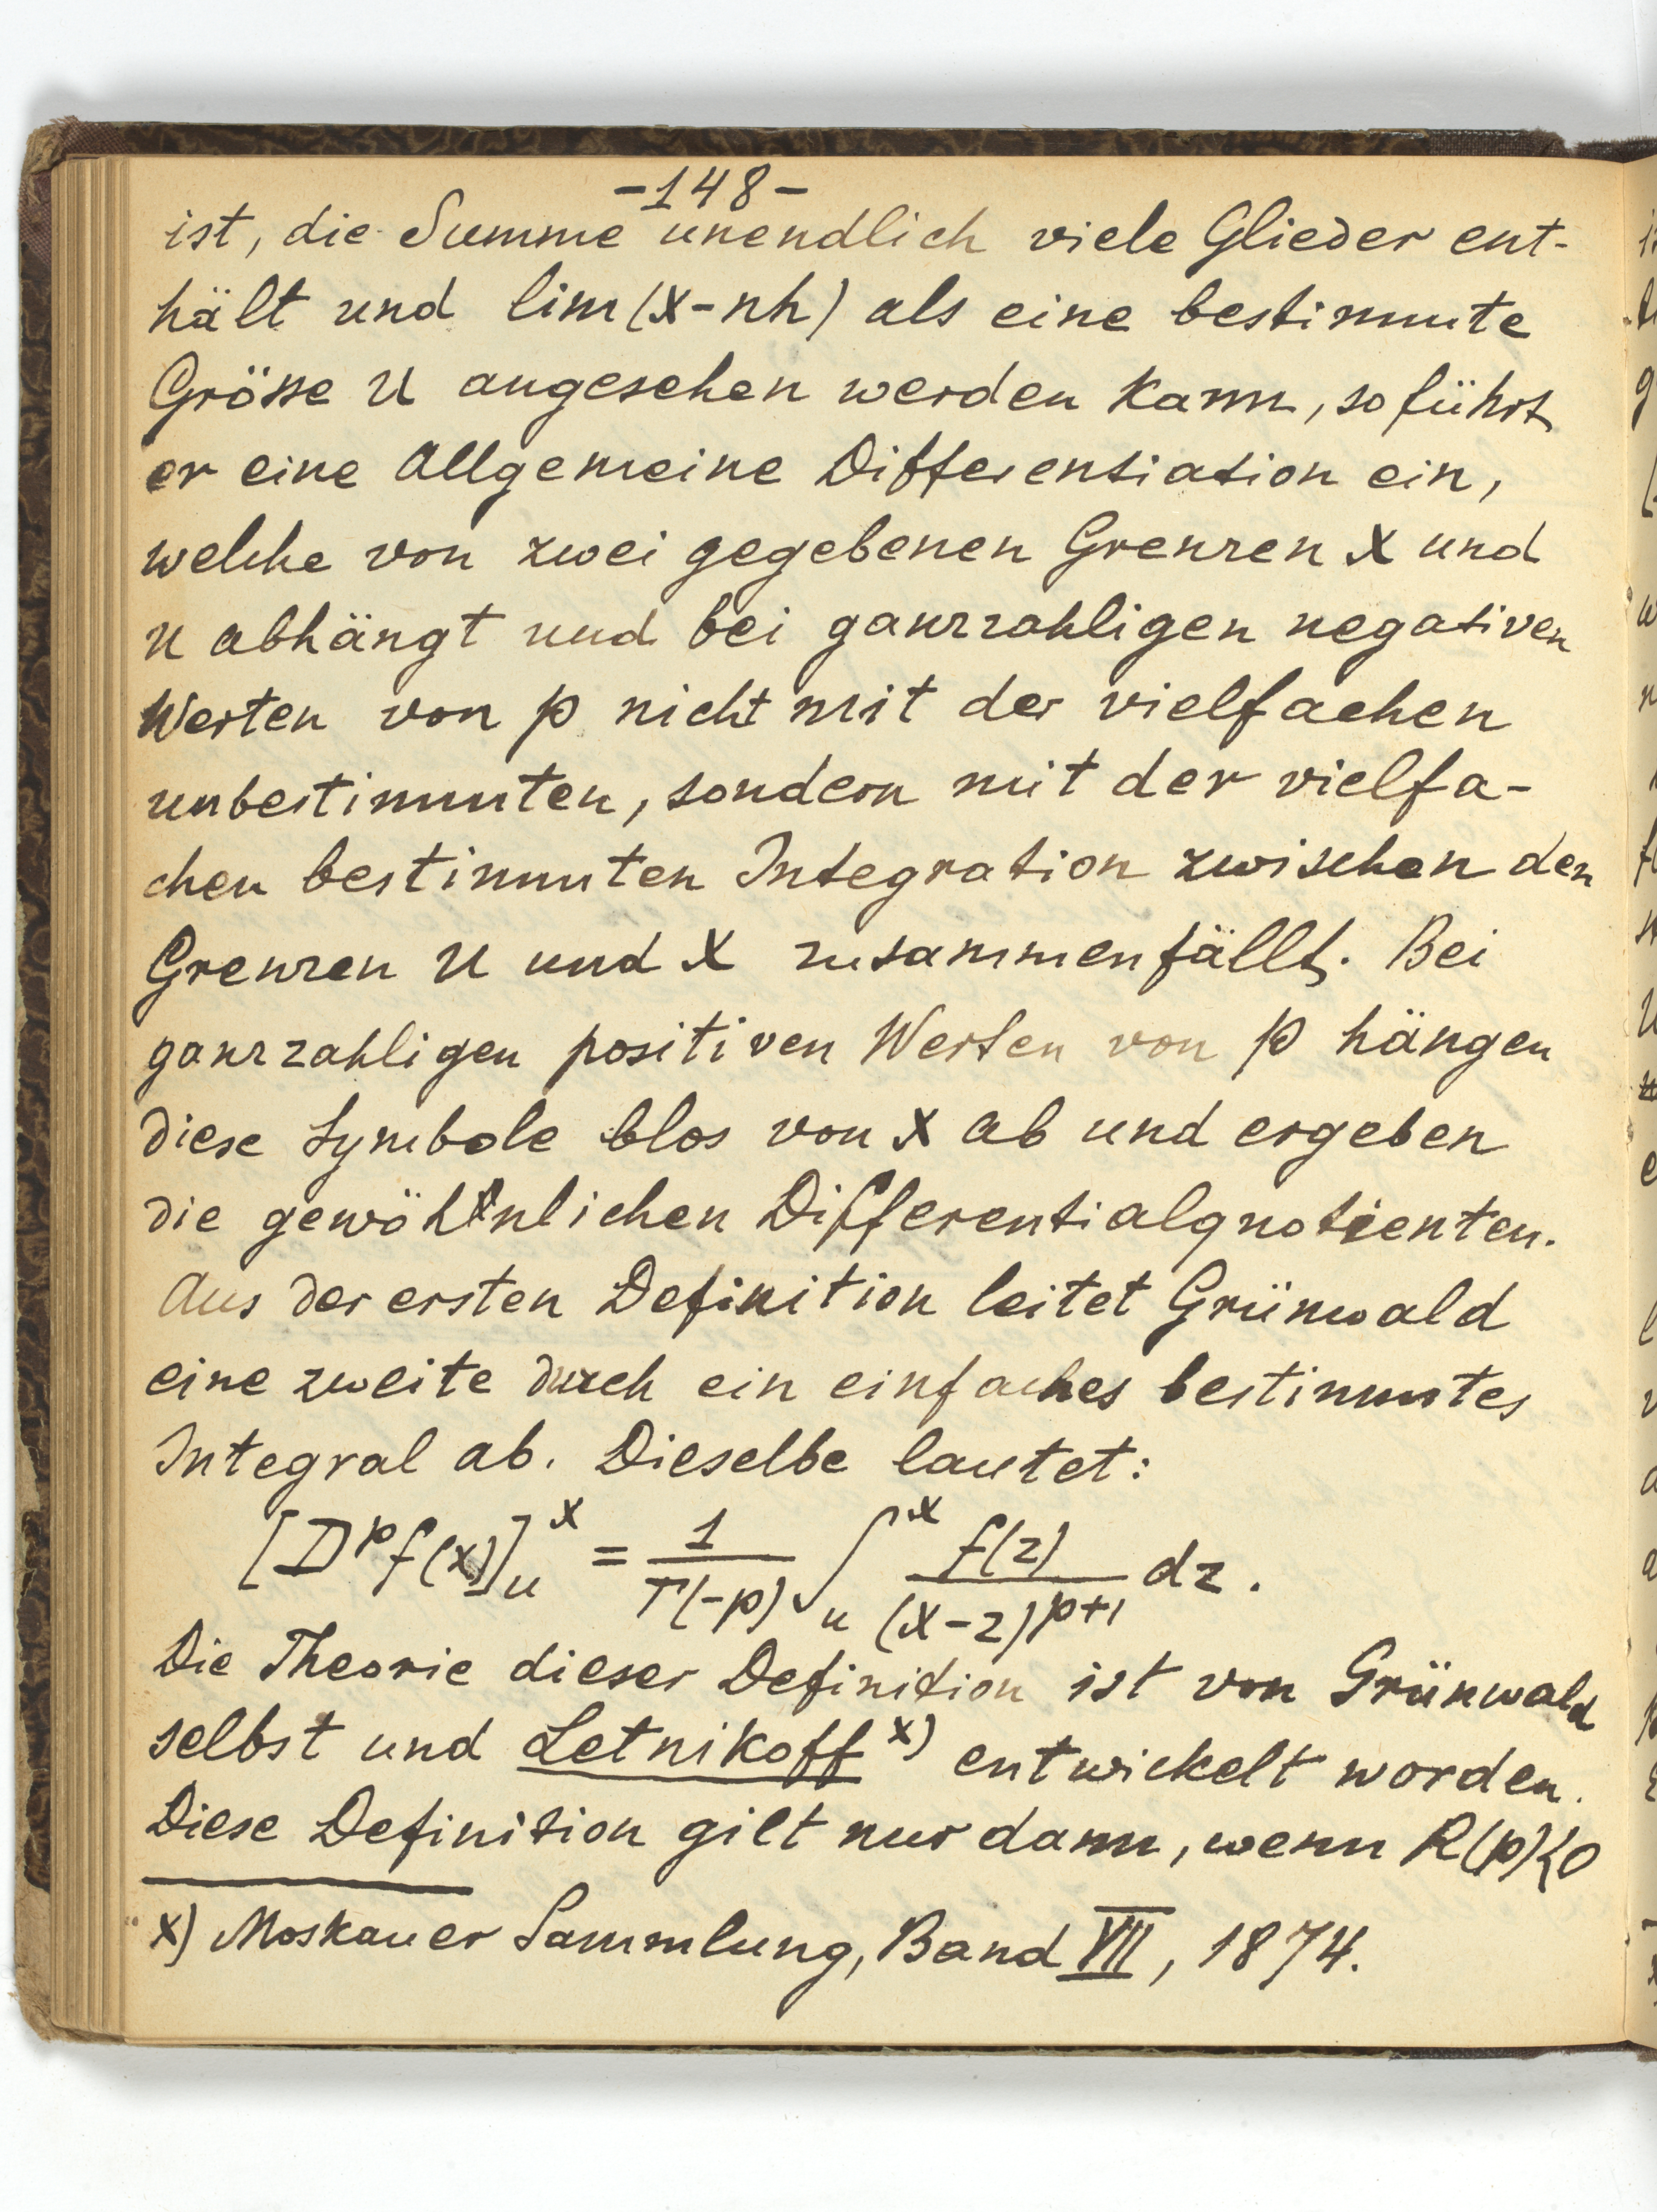 -148-
ist, die Summe unendlich viele Glieder ent-
hält und lim(x-nh) als eine bestimmte
Grösse u angesehen werden kann, so führt
er eine Allgemeine Differentiation ein,
welche von zwei gegebenen Grenzen x und
u abhängt und bei ganzzahligen negativen
Werten von p nicht mit der vielfachen
unbestimmten, sondern mit der vielfa-
chen bestimmten Integration zwischen den
Grenzen u und x zusammenfällt. Bei
ganzzahligen positiven Werten von p hängen
diese Symbole blos von x ab und ergeben
die gewöhnlichen Differentialquotienten.
Aus der ersten Definition leitet Grünwald
eine zweite durch ein einfaches bestimmtes
Integral ab. Dieselbe lautet:
[D^p f(x)]_u^x = 1/Γ(-p) ∫_u^x f(z)/(x-z)^{p+1} dz.
Die Theorie dieser Definition ist von Grünwald
selbst und Letnikoff x) entwickelt worden.
Diese Definition gilt nur dann, wenn R(p)<0
x) Moskauer Sammlung, Band VII, 1874.